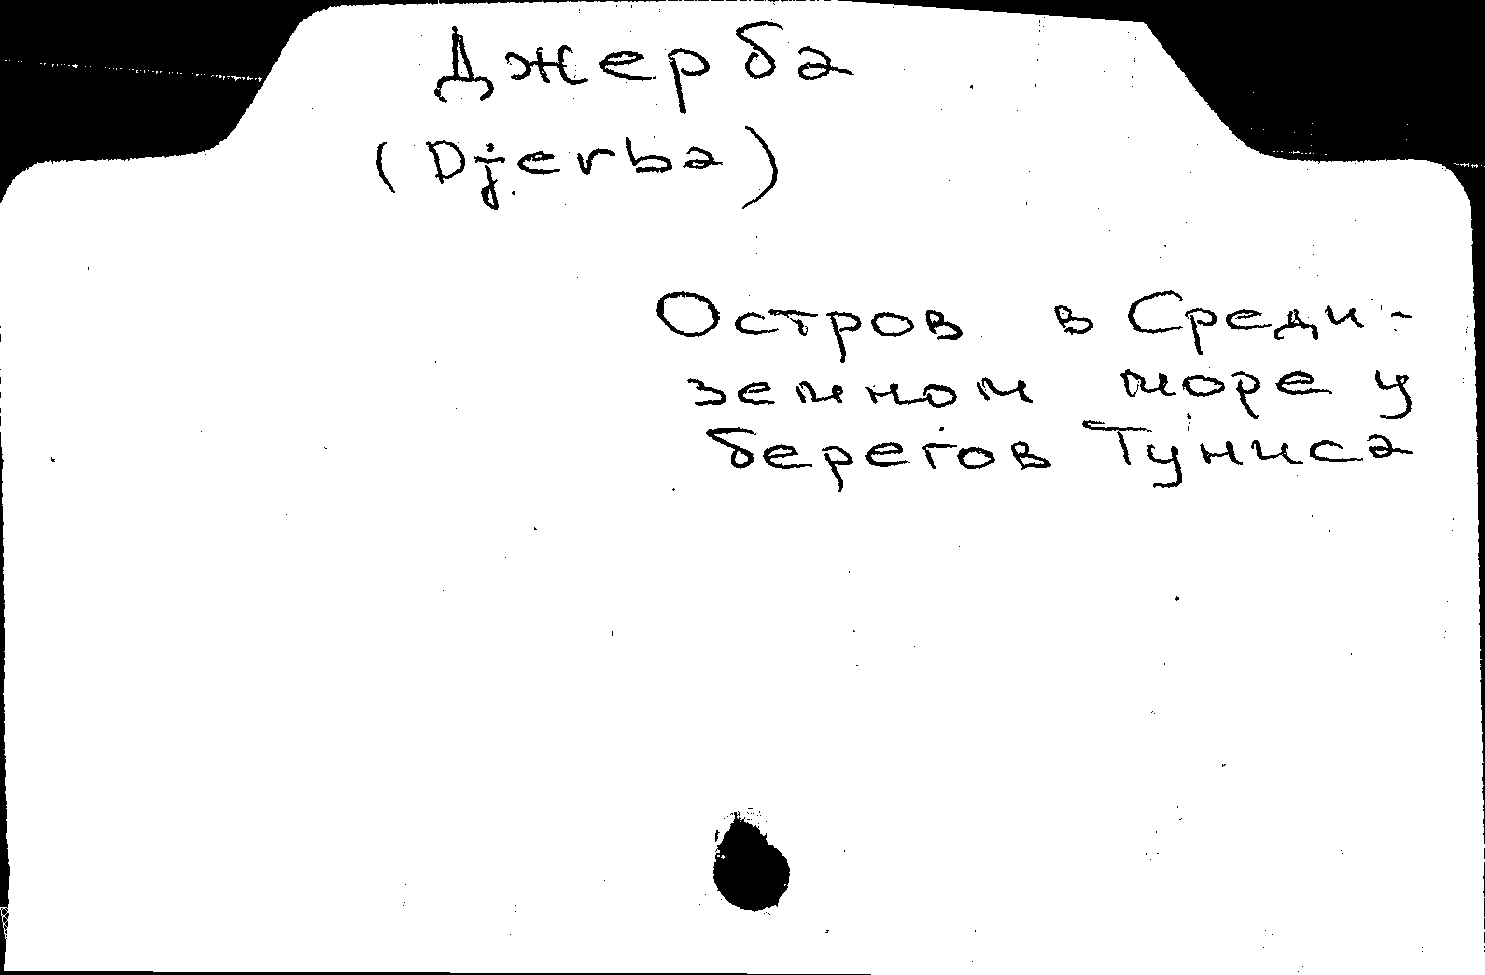 Джерба
(Djerba)
Остров в Среди-
земном море у
берегов Туниса